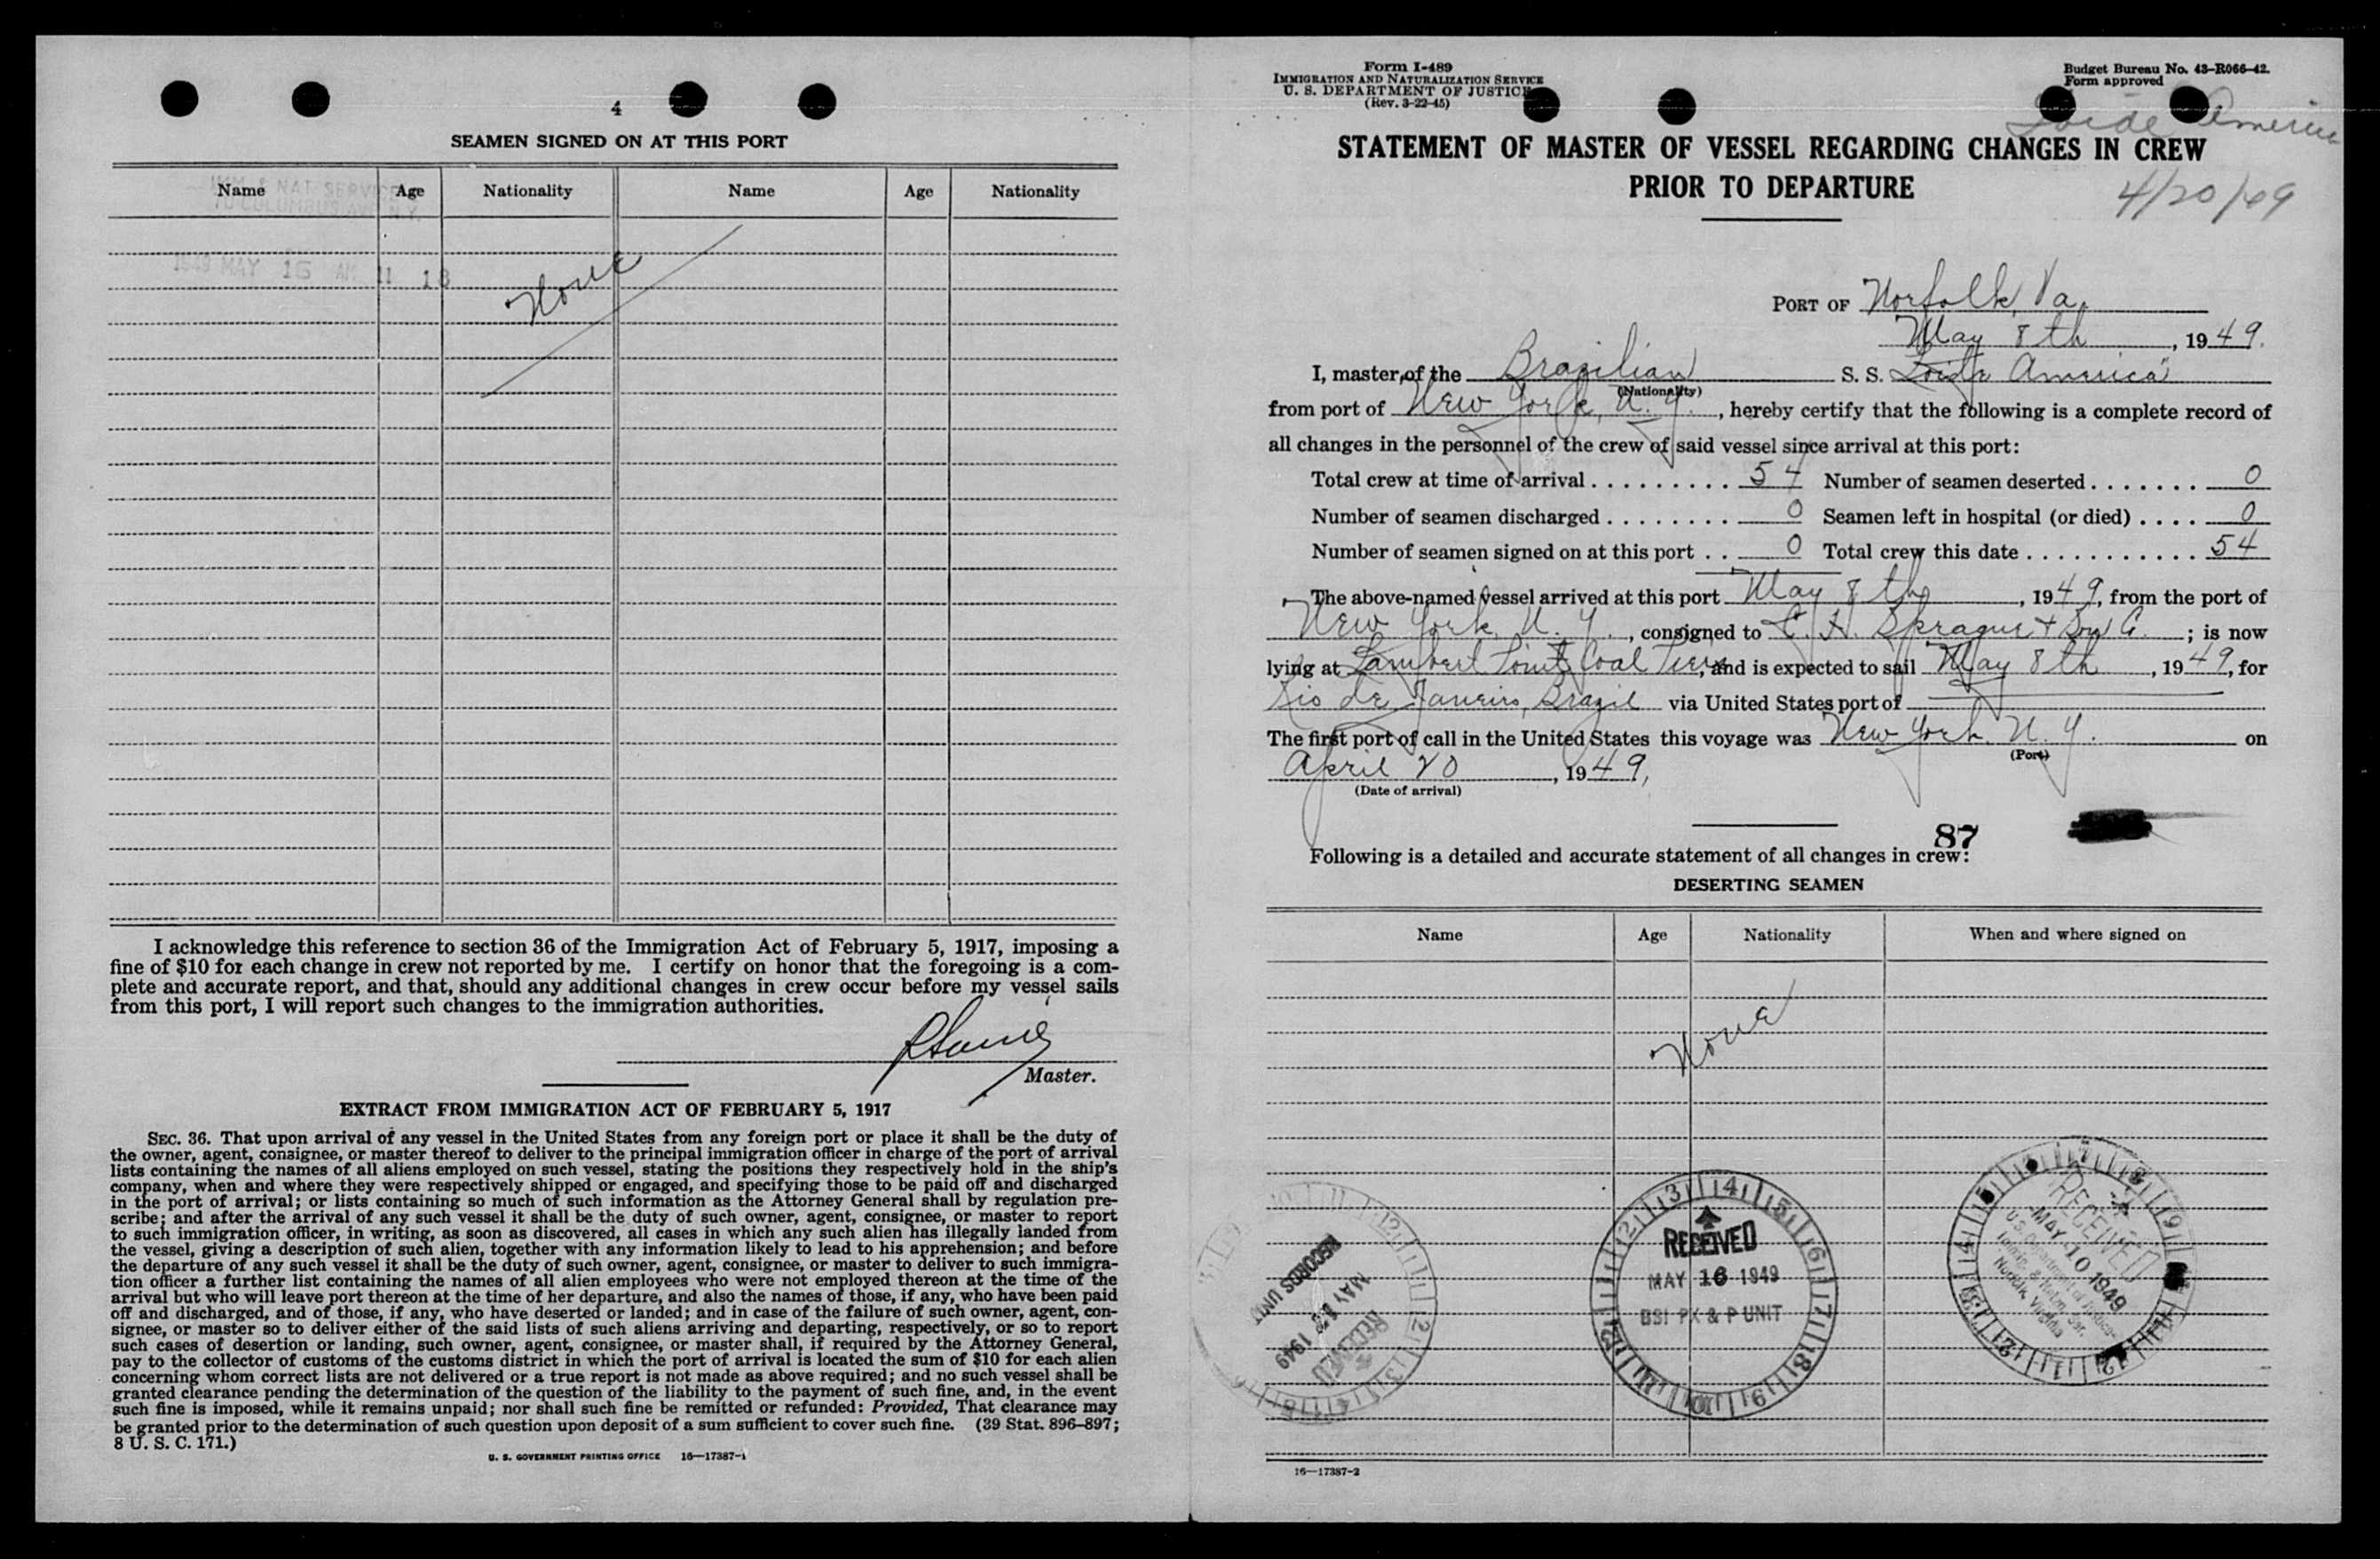 4
SEAMEN SIGNED ON AT THIS PORT
Name Age Nationality Name Age Nationality
IMM & NAT SERVICE
70 COLUMBUS AVE N.Y.
1949 MAY 16 AM 11 18
None
I acknowledge this reference to section 36 of the Immigration Act of February 5, 1917, imposing a
fine of $10 for each change in crew not reported by me. I certify on honor that the foregoing is a com-
plete and accurate report, and that, should any additional changes in crew occur before my vessel sails
from this port, I will report such changes to the immigration authorities.
Master.
EXTRACT FROM IMMIGRATION ACT OF FEBRUARY 5, 1917
SEC. 36. That upon arrival of any vessel in the United States from any foreign port or place it shall be the duty of
the owner, agent, consignee, or master thereof to deliver to the principal immigration officer in charge of the port of arrival
lists containing the names of all aliens employed on such vessel, stating the positions they respectively hold in the ship's
company, when and where they were respectively shipped or engaged, and specifying those to be paid off and discharged
in the port of arrival; or lists containing so much of such information as the Attorney General shall by regulation pre-
scribe; and after the arrival of any such vessel it shall be the duty of such owner, agent, consignee, or master to report
to such immigration officer, in writing, as soon as discovered, all cases in which any such alien has illegally landed from
the vessel, giving a description of such alien, together with any information likely to lead to his apprehension; and before
the departure of any such vessel it shall be the duty of such owner, agent, consignee, or master to deliver to such immigra-
tion officer a further list containing the names of all alien employees who were not employed thereon at the time of the
arrival but who will leave port thereon at the time of her departure, and also the names of those, if any, who have been paid
off and discharged, and of those, if any, who have deserted or landed; and in case of the failure of such owner, agent, con-
signee, or master so to deliver either of the said lists of such aliens arriving and departing, respectively, or so to report
such cases of desertion or landing, such owner, agent, consignee, or master shall, if required by the Attorney General,
pay to the collector of customs of the customs district in which the port of arrival is located the sum of $10 for each alien
concerning whom correct lists are not delivered or a true report is not made as above required; and no such vessel shall be
granted clearance pending the determination of the question of the liability to the payment of such fine, and, in the event
such fine is imposed, while it remains unpaid; nor shall such fine be remitted or refunded: Provided, That clearance may
be granted prior to the determination of such question upon deposit of a sum sufficient to cover such fine. (39 Stat. 896-897;
8 U. S. C. 171.)
U. S. GOVERNMENT PRINTING OFFICE 16—17387-1
Form I-489
IMMIGRATION AND NATURALIZATION SERVICE
U. S. DEPARTMENT OF JUSTICE
(Rev. 3-22-45)
Budget Bureau No. 43-R066-42.
Form approved
Loide America
STATEMENT OF MASTER OF VESSEL REGARDING CHANGES IN CREW
PRIOR TO DEPARTURE
4/20/49
PORT OF Norfolk, Va.
May 8th, 1949.
I, master of the Brazilian S. S. Loide America"
(Nationality)
from port of New York, N. Y., hereby certify that the following is a complete record of
all changes in the personnel of the crew of said vessel since arrival at this port:
Total crew at time of arrival......... 54 Number of seamen deserted....... 0
Number of seamen discharged........ 0 Seamen left in hospital (or died).... 0
Number of seamen signed on at this port.. 0 Total crew this date............ 54
The above-named vessel arrived at this port May 8th, 1949, from the port of
New York, N. Y., consigned to C. H. Sprague & Son Co.; is now
lying at Lambert Point Coal Piers, and is expected to sail May 8th, 1949, for
Rio de Janeiro, Brazil via United States port of
The first port of call in the United States this voyage was New York, N. Y. on
(Port)
April 20, 1949,
(Date of arrival)
87
Following is a detailed and accurate statement of all changes in crew:
DESERTING SEAMEN
Name Age Nationality When and where signed on
None
RECORDS UNIT
MAY 1949
RECEIVED
RECEIVED
MAY 16 1949
BSI PX & P UNIT
RECEIVED
MAY 10 1949
U. S. Department of Justice
Immig. & Natlz. Ser.
Norfolk, Virginia
16—17387-2